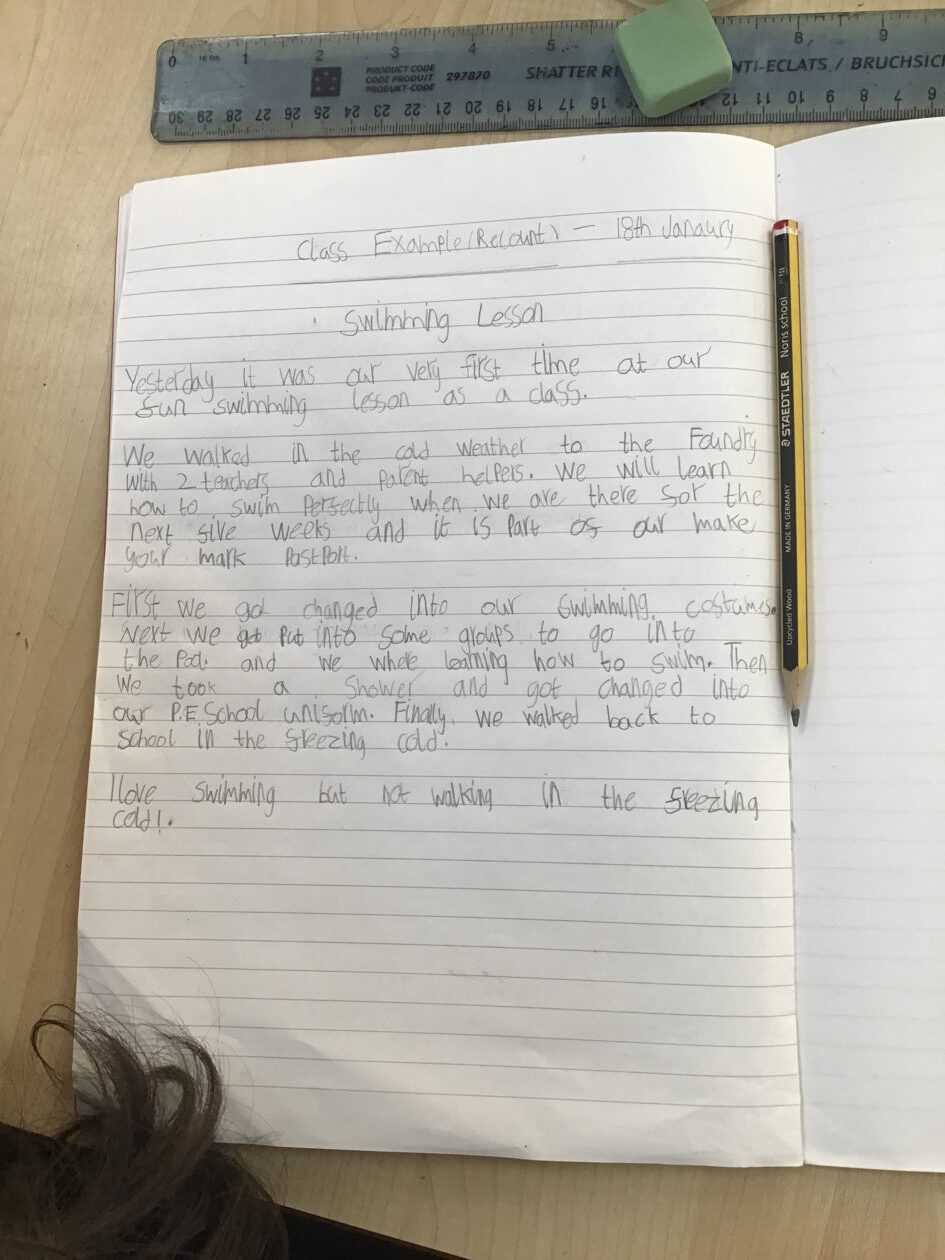 0 1 2 3 4 5 8 9
PRODUCT CODE
CODE PRODUIT 297870
PRODUKT-CODE
SHATTER RE NTI-ECLATS / BRUCHSIC
30 29 28 27 26 25 24 23 22 21 20 19 18 17 16 12 11 10 9 8 7 6
Class Example (Recount) - 18th Janaury
Swimming Lesson
Yesterday it was our very first time at our
fun swimming lesson as a class.
We walked in the cold weather to the Foundry
with 2 teachers and parent helpers. We will learn
how to swim perfectly when we are there for the
next five weeks and it is part of our make
your mark pastport.
First we got changed into our swimming costumes.
Next we got put into some groups to go into
the pool. and we where learning how to swim. Then
We took a shower and got changed into
our P.E. School uniform. Finally, we walked back to
School in the freezing cold.
I love swimming but not walking in the freezing
cold!.
STAEDTLER Noris school
MADE IN GERMANY
Upcycled Wood